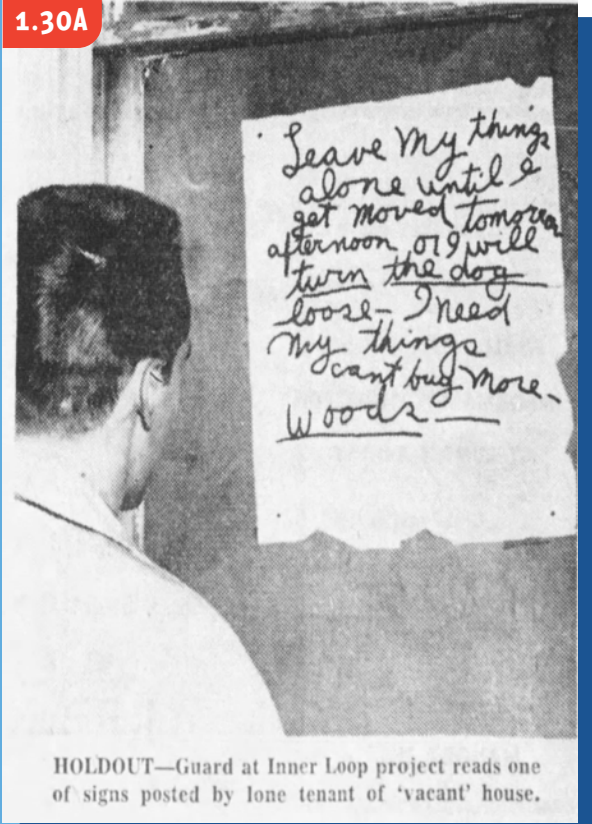 1.30A
Leave My things
alone until I
get moved tomorrow
afternoon or I will
turn the dog
loose- I need
My things
cant buy More-
Woods
HOLDOUT—Guard at Inner Loop project reads one
of signs posted by lone tenant of ‘vacant’ house.